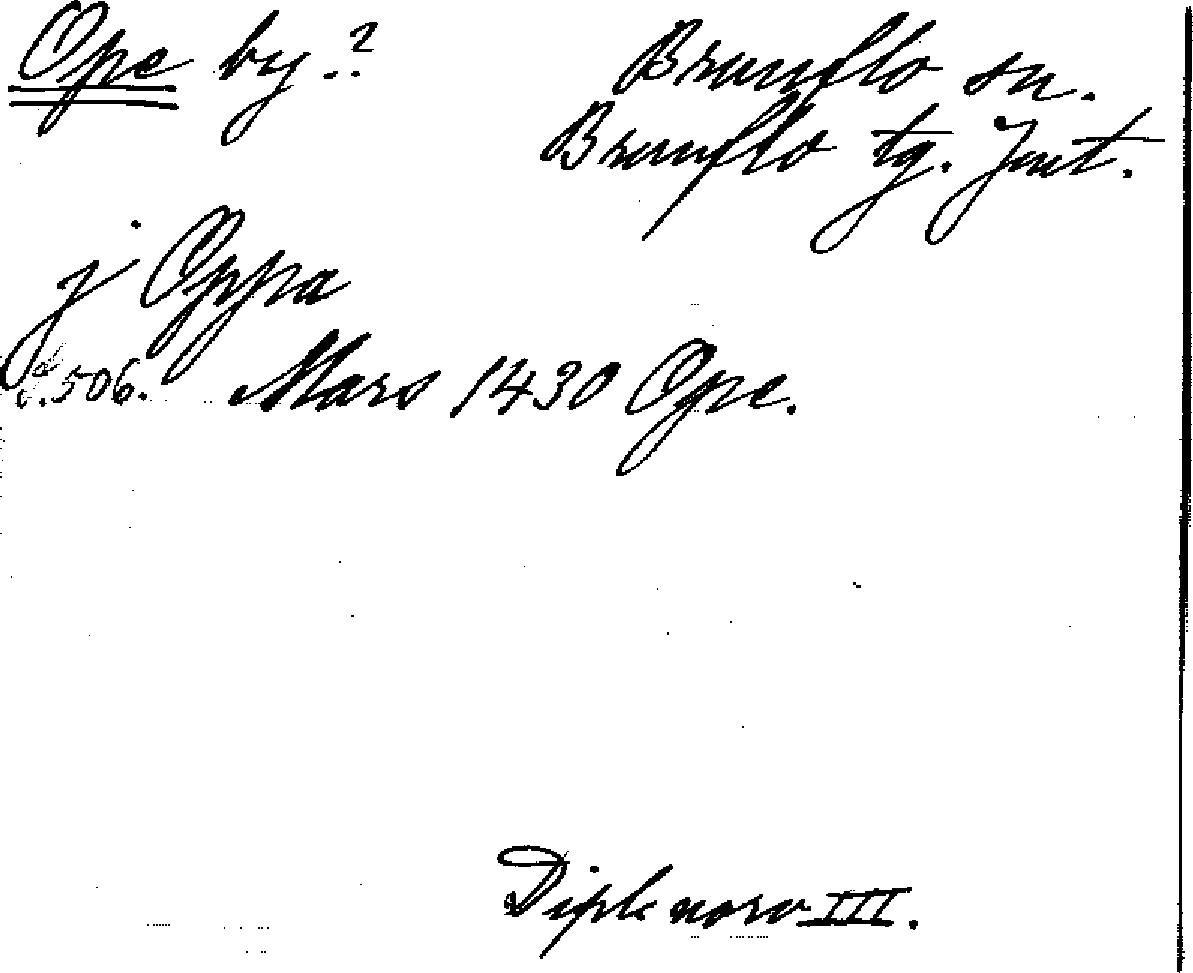 Ope by..?
Brunflo sn.
Brunflo tg. Jmt.
j Oppa
s. 506. Mars 1430 Ope.
Dipl. norv III.